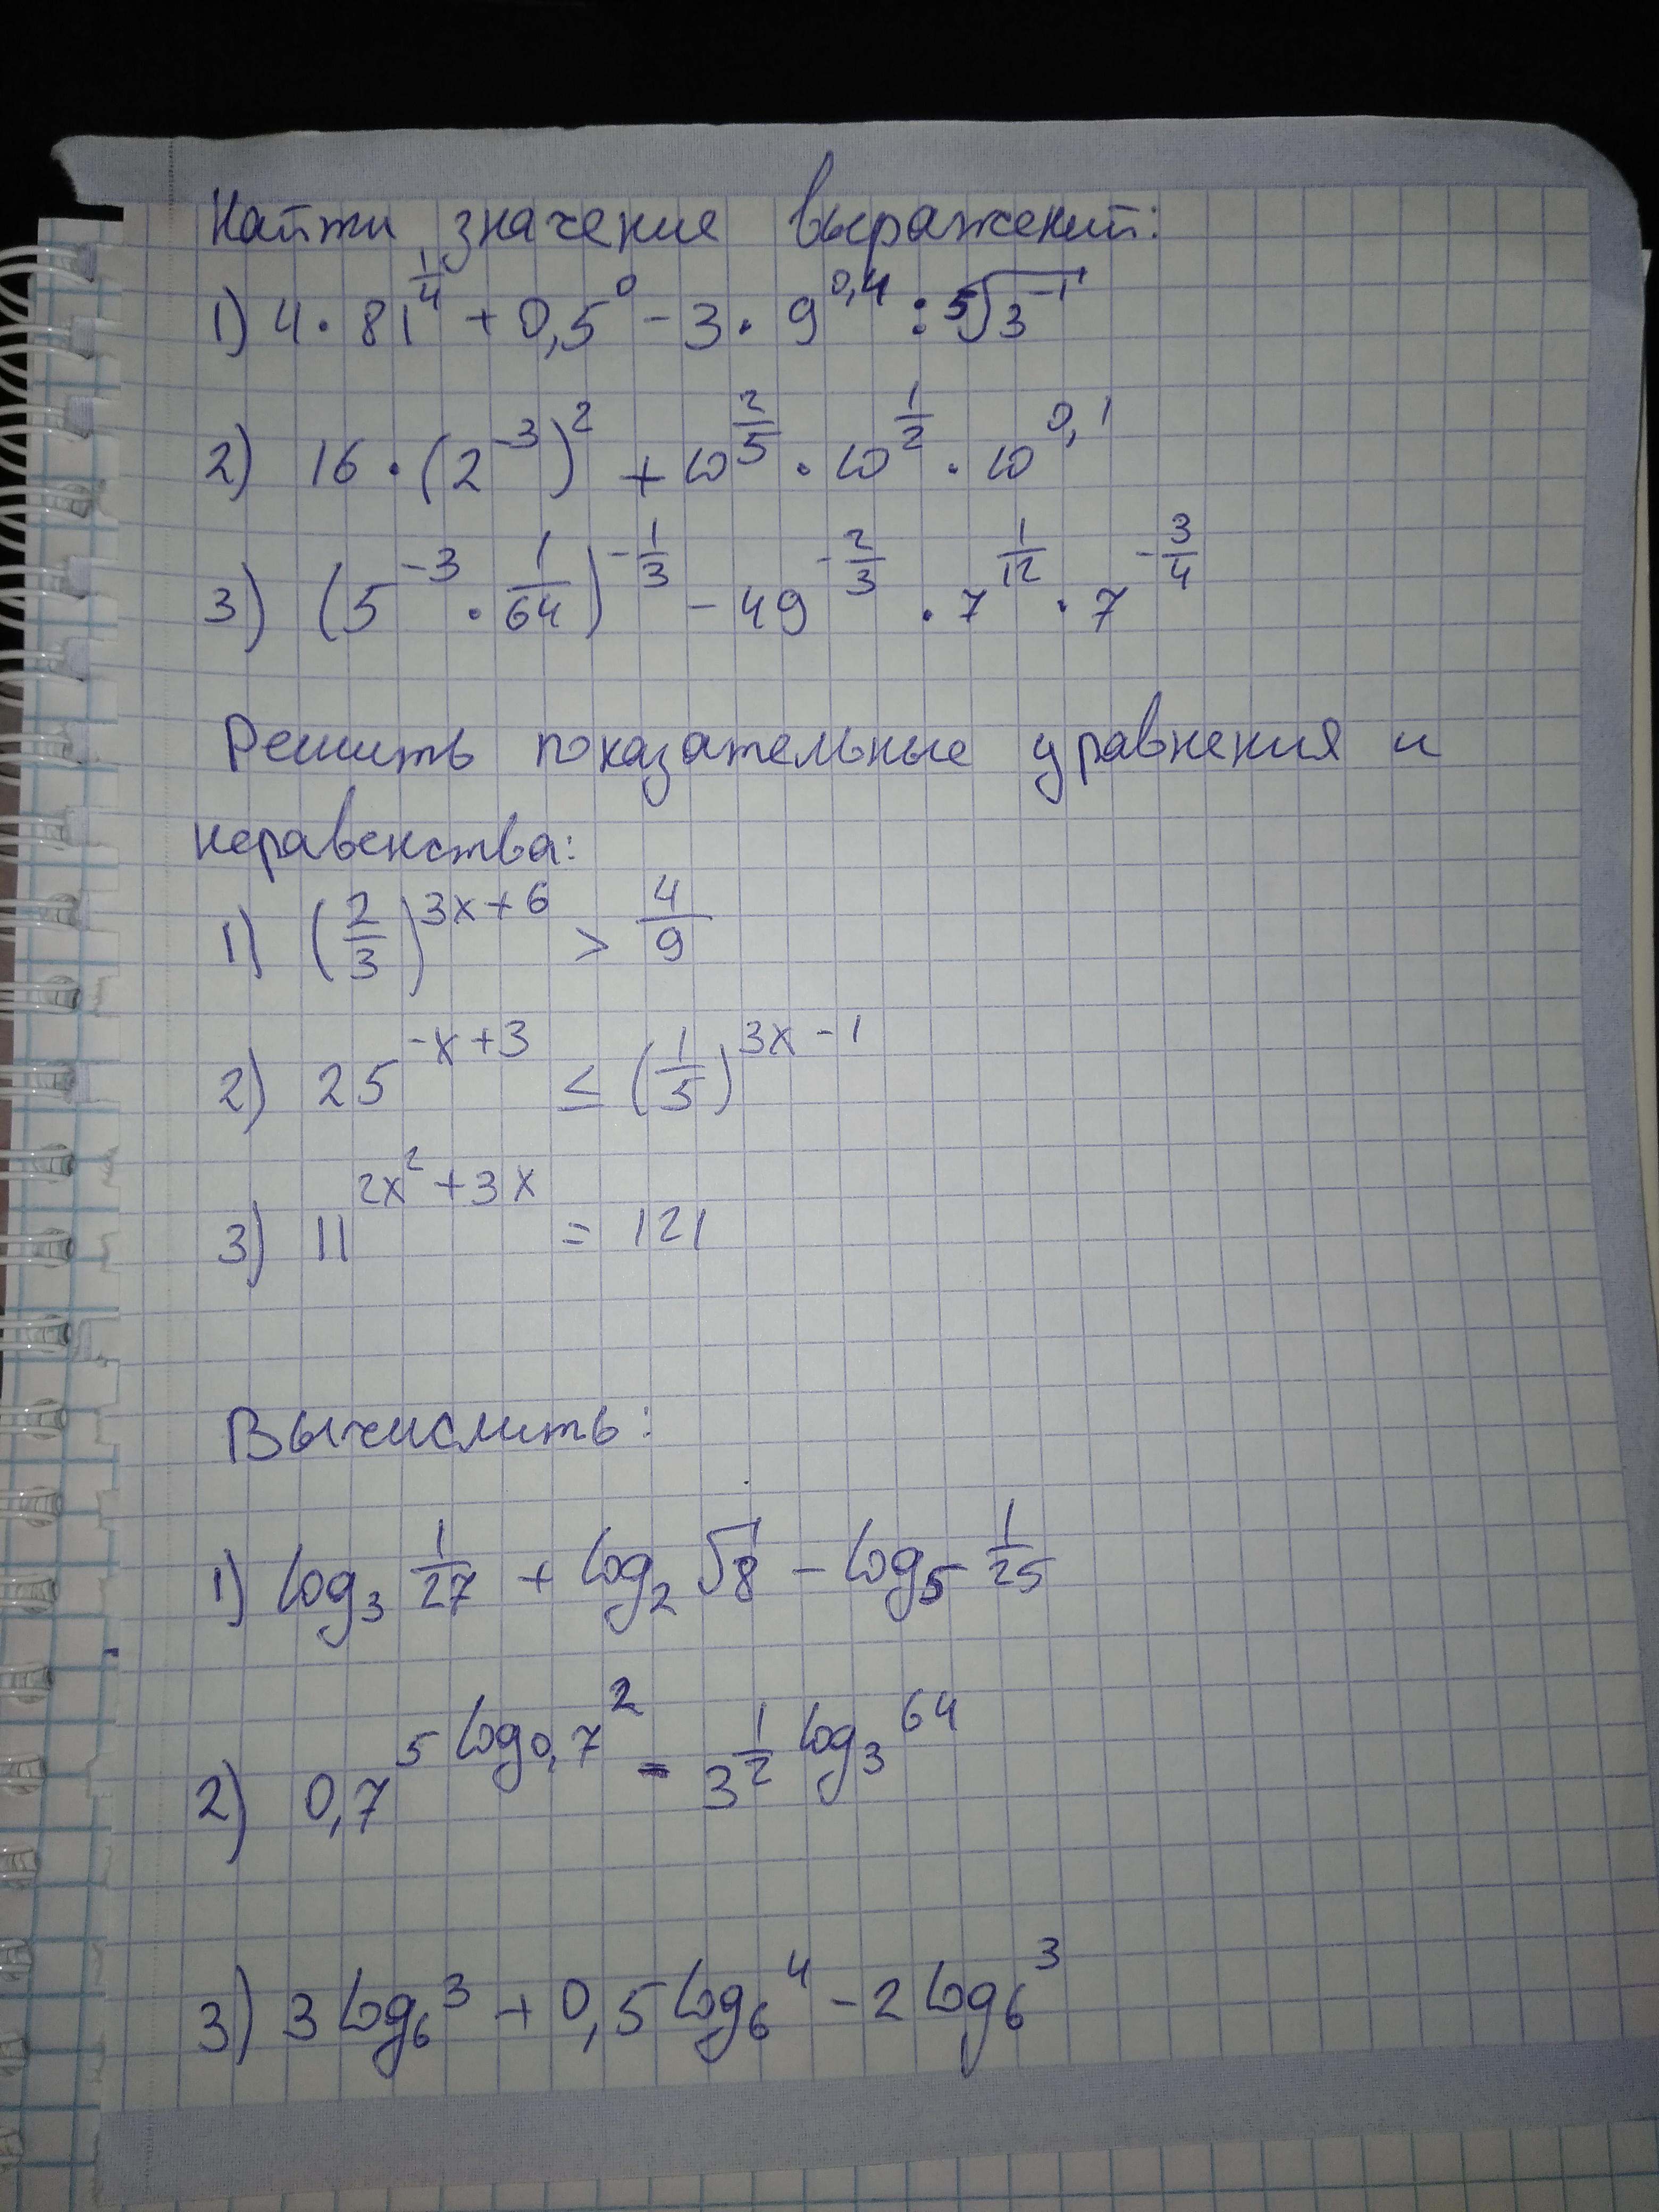 Найти значение выражений:
1) 4 · 81^(1/4) + 0,5^0 - 3 · 9^(0,4) : ⁵√(3^(-1))
2) 16 · (2^(-3))^2 + 10^(2/5) · 10^(1/2) · 10^(0,1)
3) (5^(-3) · 1/64)^(-1/3) - 49^(-2/3) · 7^(1/12) · 7^(-3/4)
Решить показательные уравнения и
неравенства:
1) (2/3)^(3x+6) > 4/9
2) 25^(-x+3) ≤ (1/5)^(3x-1)
3) 11^(2x^2+3x) = 121
Вычислить:
1) log₃ 1/27 + log₂ √8 - log₅ 1/25
2) 0,7^(5 log₀,₇ 2) - 3^(1/2 log₃ 64)
3) 3 log₆ 3 + 0,5 log₆ 4 - 2 log₆ 3